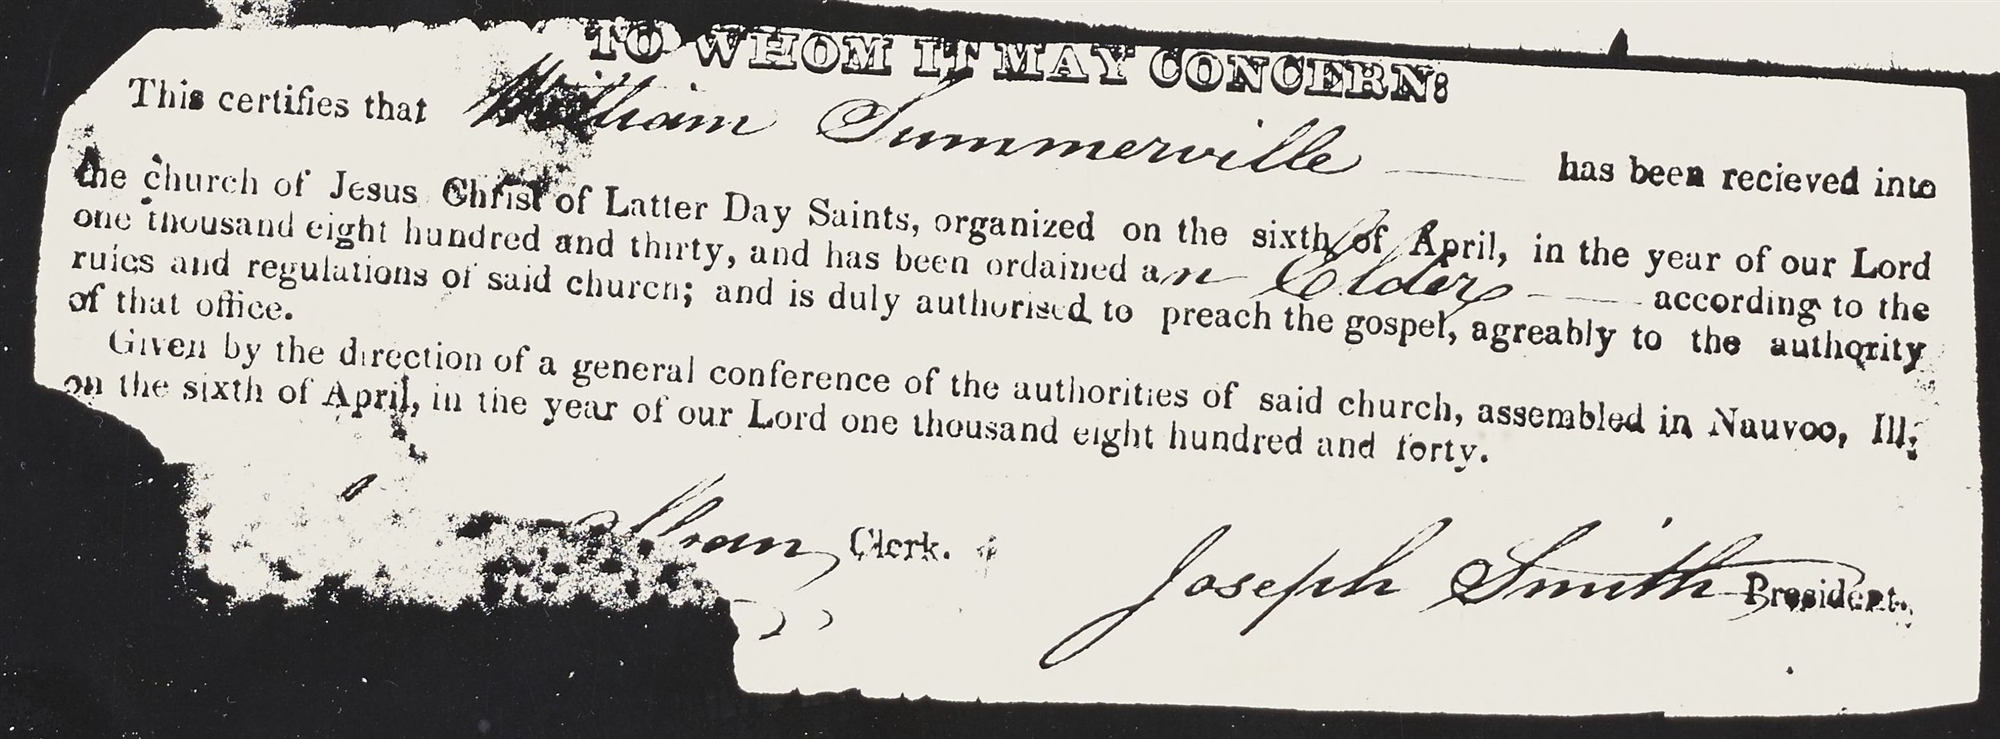 TO WHOM IT MAY CONCERN:
This certifies that William Summerville has been recieved into
the church of Jesus Christ of Latter Day Saints, organized on the sixth of April, in the year of our Lord
one thousand eight hundred and thirty, and has been ordained an Elder according to the
rules and regulations of said church; and is duly authorised to preach the gospel, agreably to the authority
of that office.
Given by the direction of a general conference of the authorities of said church, assembled in Nauvoo, Ill,
on the sixth of April, in the year of our Lord one thousand eight hundred and forty.
Clerk. Joseph Smith President.